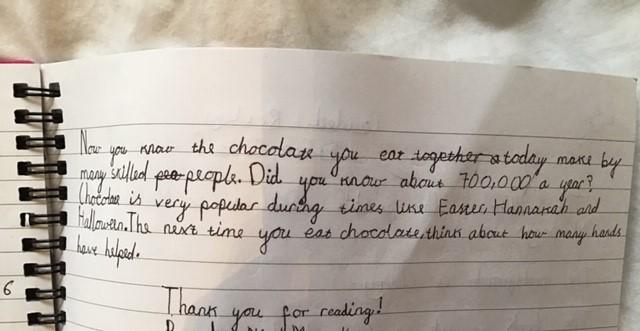 Now you know the chocolate you eat together a today make by
many skilled peo people. Did you know about 700,000 a year?
Chocolate is very popular during times like Easter, Hannakah and
Halloween. The next time you eat chocolate, think about how many hands
have helped.
6
Thank you for reading!